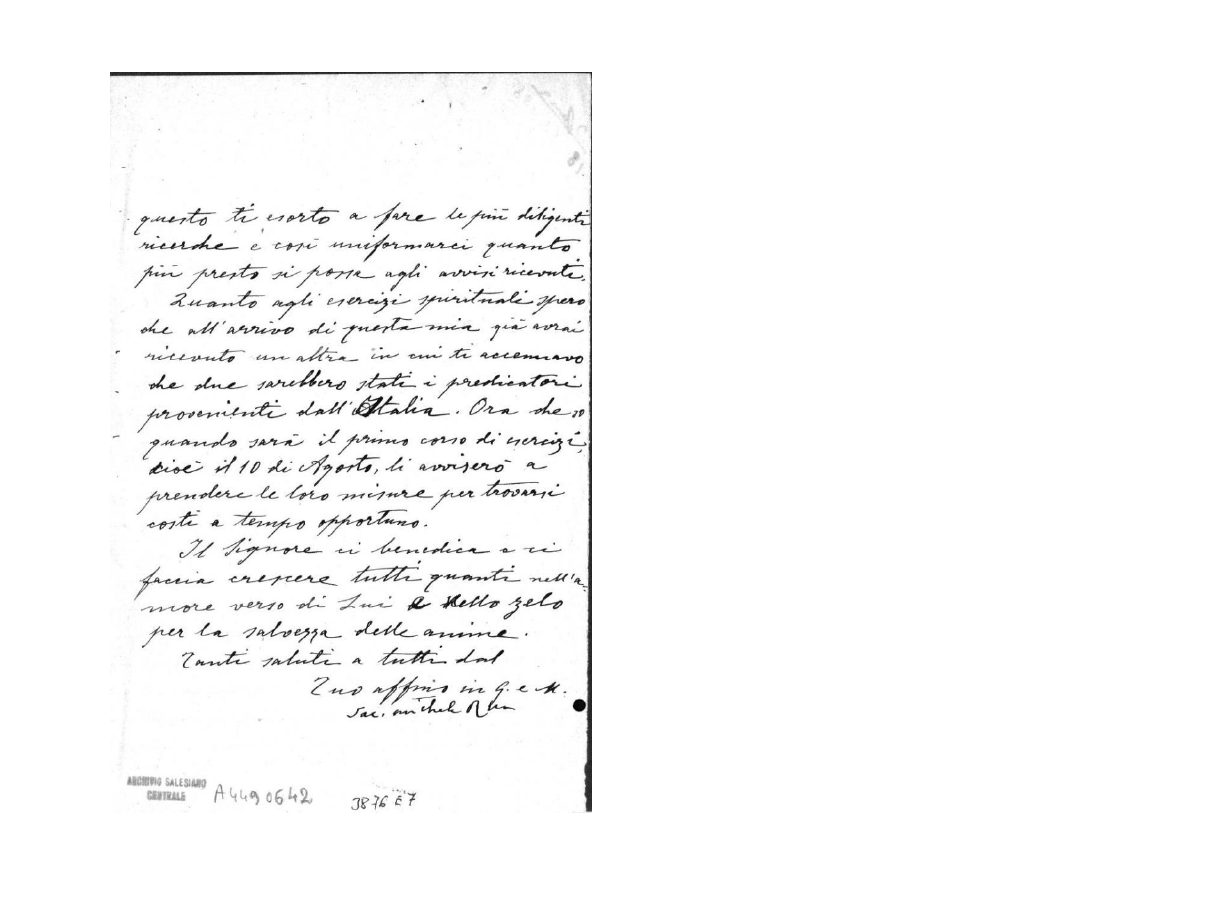 questo ti esorto a fare le più diligenti
ricerche e così uniformarci quanto
più presto si possa agli avvisi ricevuti.
Quanto agli esercizi spirituali spero
che all'arrivo di questa mia già avrai
ricevuto un altra in cui ti accennavo
che due sarebbero stati i predicatori
provenienti dall'Italia. Ora che so
quando sarà il primo corso di esercizi,
cioè il 10 di Agosto, li avviserò a
prendere le loro misure per trovarsi
costì a tempo opportuno.
Il Signore ci benedica e ci
faccia crescere tutti quanti nell'a-
more verso di Lui e nello zelo
per la salvezza delle anime.
Tanti saluti a tutti dal
Tuo affmo in G. e M.
Sac. Michele Rua
ARCHIVIO SALESIANO
CENTRALE
A4490642
3876 E 7